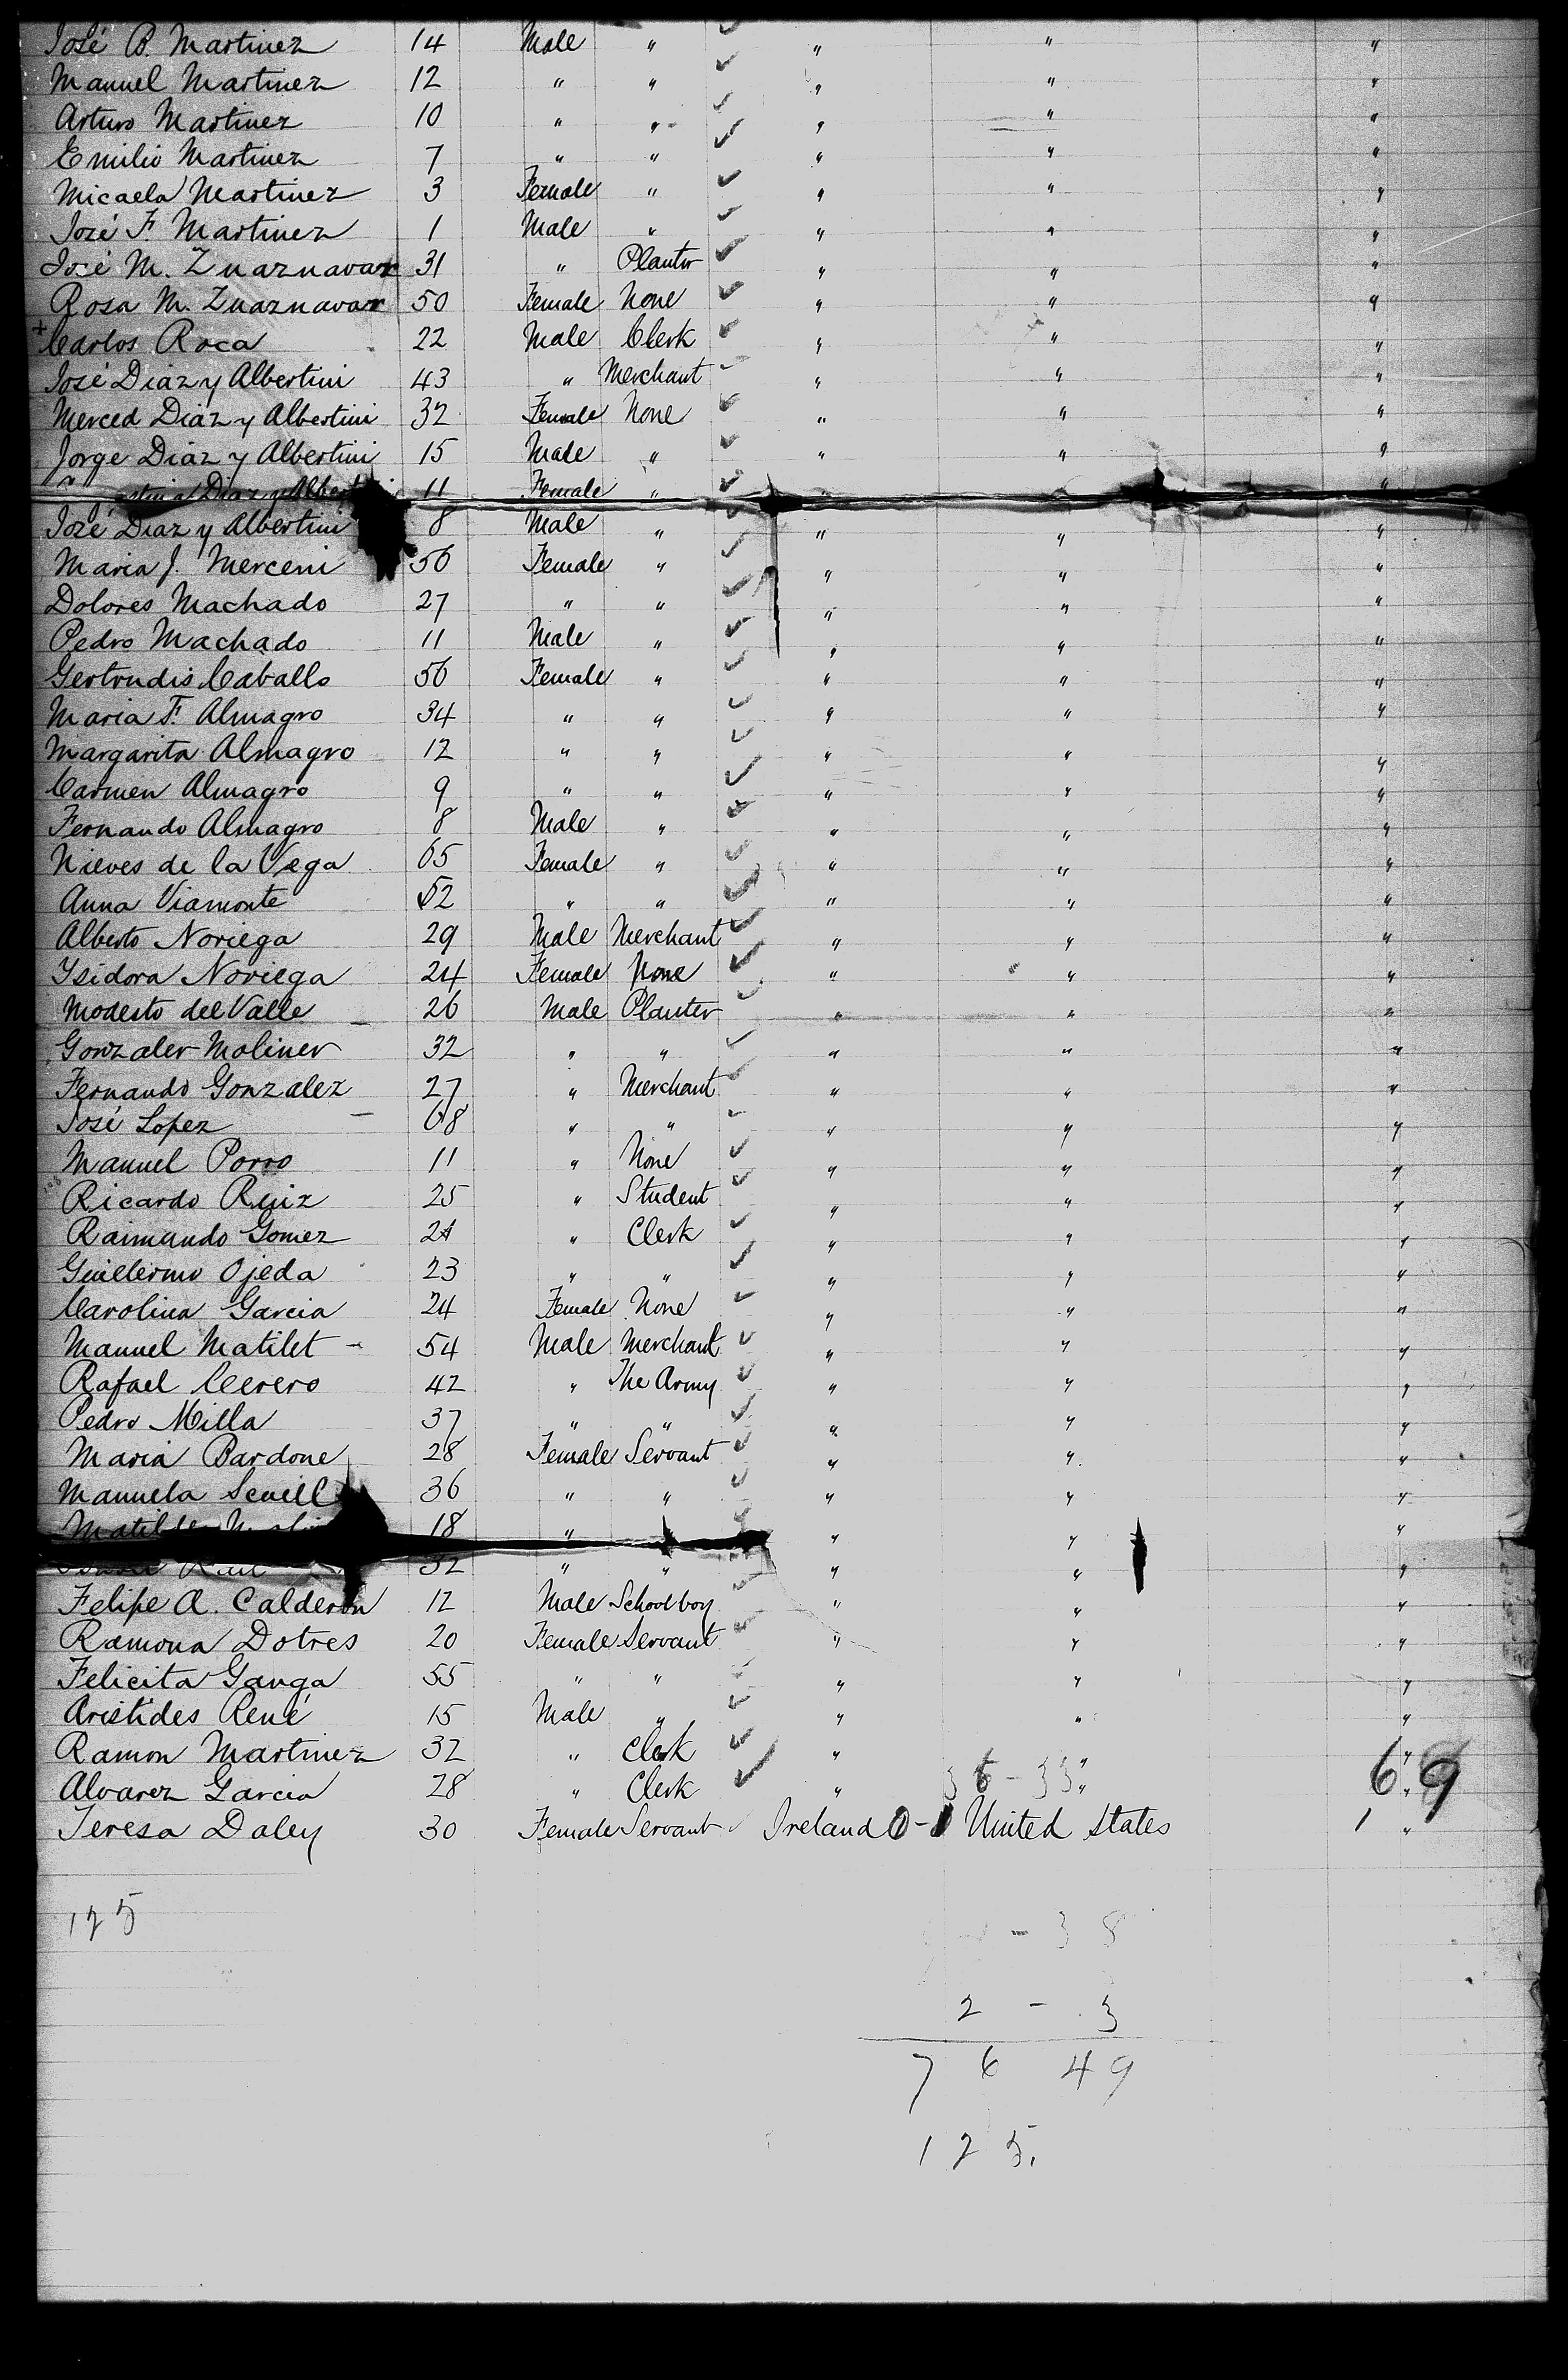 José B. Martinez 14 Male " " " "
Manuel Martinez 12 " " " " "
Arturo Martinez 10 " " " " "
Emilio Martinez 7 " " " " "
Micaela Martinez 3 Female " " " "
José F. Martinez 1 Male " " " "
José M. Zuaznavar 31 " Planter " " "
Rosa M. Zuaznavar 50 Female None " " "
+ Carlos Roca 22 Male Clerk " " "
José Diaz y Albertini 43 " Merchant " " "
Merced Diaz y Albertini 32 Female None " " "
Jorge Diaz y Albertini 15 Male " " " "
Diaz y Albert 11 Female " " "
José Diaz y Albertini 8 Male " " " "
Maria J. Merceni 56 Female " " " "
Dolores Machado 27 " " " " "
Pedro Machado 11 Male " " " "
Gertrudis Caballo 56 Female " " " "
Maria F. Almagro 34 " " " " "
Margarita Almagro 12 " " " " "
Carmen Almagro 9 " " " " "
Fernando Almagro 8 Male " " " "
Nieves de la Vega 65 Female " " " "
Anna Viamonte 52 " " " " "
Alberto Noriega 29 Male Merchant " " "
Ysidora Noriega 24 Female None " " "
Modesto del Valle 26 Male Planter " " "
Gonzalez Moliner 32 " " " " "
Fernando Gonzalez 27 " Merchant " " "
José Lopez 68 " " " " "
Manuel Porro 11 " None " " "
Ricardo Ruiz 25 " Student " " "
Raimundo Gomez 24 " Clerk " " "
Guillermo Ojeda 23 " " " " "
Carolina Garcia 24 Female None " " "
Manuel Matilet 54 Male Merchant " " "
Rafael Cerero 42 " The Army " " "
Pedro Milla 37 " " " " "
Maria Bardone 28 Female Servant " " "
Manuela 36 " " " " "
18 " " " "
32 " " " " "
Felipe A. Calderon 12 Male School boy " " "
Ramona Dotres 20 Female Servant " " "
Felicita Ganga 55 " " " " "
Aristides René 15 Male " " " "
Ramon Martinez 32 " Clerk " " "
Alvarez Garcia 28 " Clerk " 36 - 33 " " 69
Teresa Daley 30 Female Servant Ireland 0 - 1 United States 1 "
125
- 38
2 - 3
76 49
125.